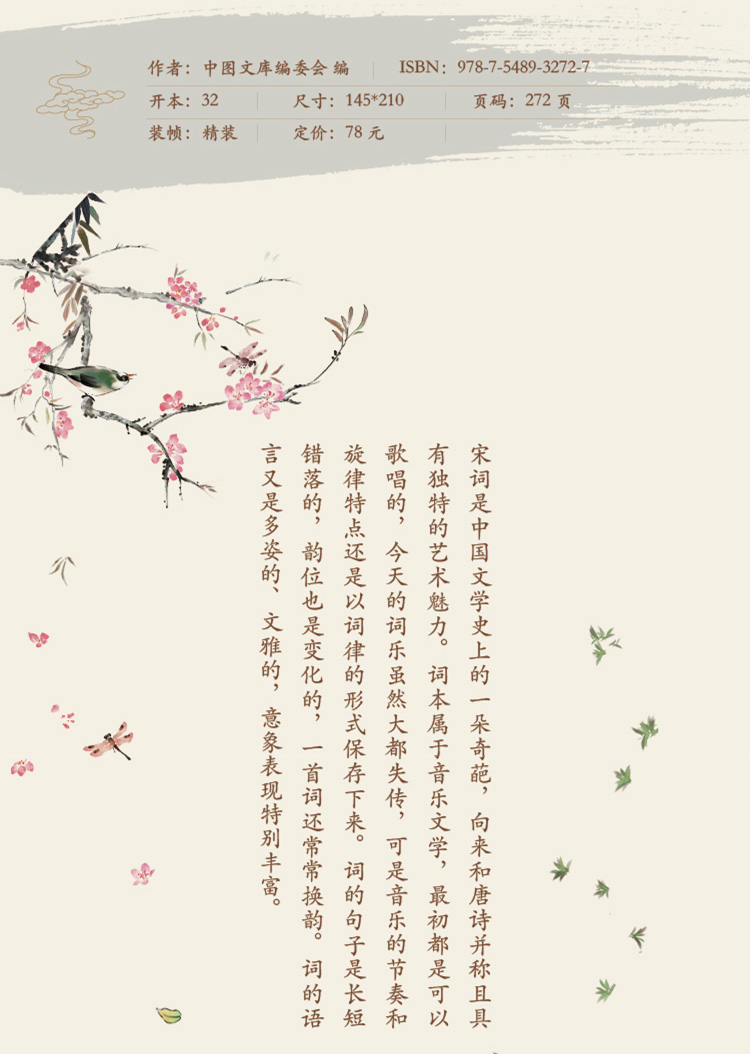 作者：中图文库编委会 编 ISBN：978-7-5489-3272-7
开本：32 尺寸：145*210 页码：272 页
装帧：精装 定价：78 元
宋词是中国文学史上的一朵奇葩，向来和唐诗并称且具
有独特的艺术魅力。词本属于音乐文学，最初都是可以
歌唱的，今天的词乐虽然大都失传，可是音乐的节奏和
旋律特点还是以词律的形式保存下来。词的句子是长短
错落的，韵位也是变化的，一首词还常常换韵。词的语
言又是多姿的、文雅的，意象表现特别丰富。